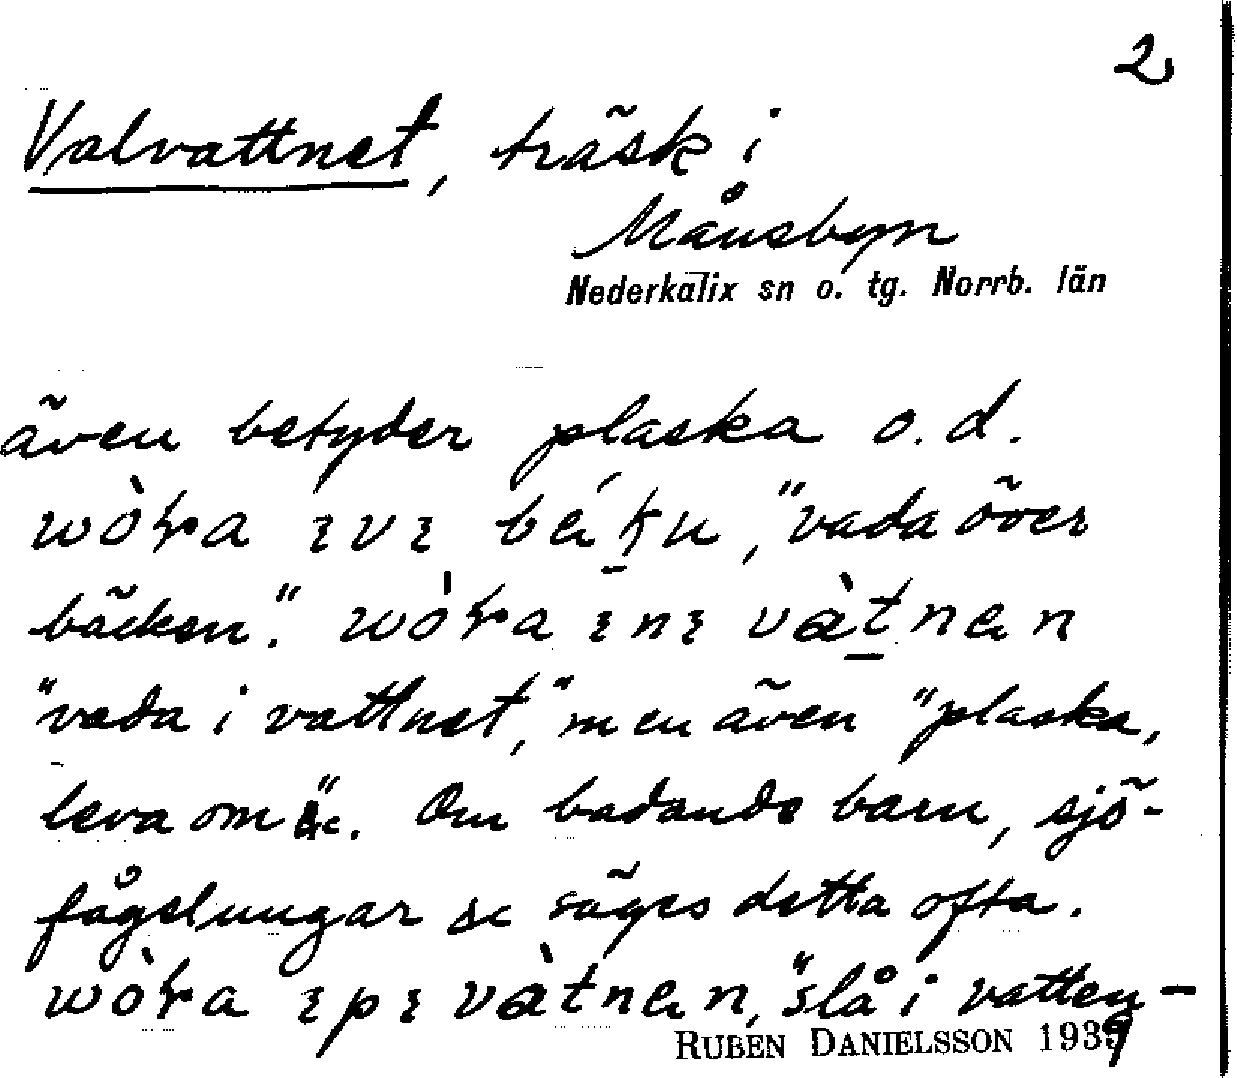 2
Valvattnet, träsk i
Månsbyn
Nederkalix sn o. tg. Norrb. län
även betyder plaska o. d.
"vada över
bäcken".
"vada i vattnet," men även "plaska,
leva om" &c. Om badande barn, sjö-
fågelungar &c säges detta ofta.
"slå i vatten-
RUBEN DANIELSSON 1939